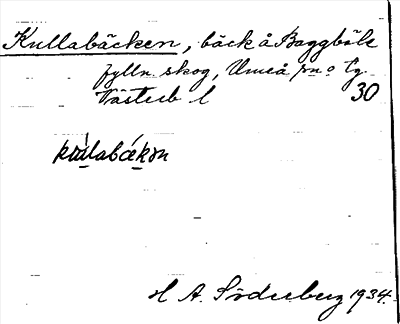 Kullabäcken, bäck å Baggböle
fylln. skog, Umeå sn o tg
Västerb l 30
kúlabǽkən
H A. Söderberg 1934.